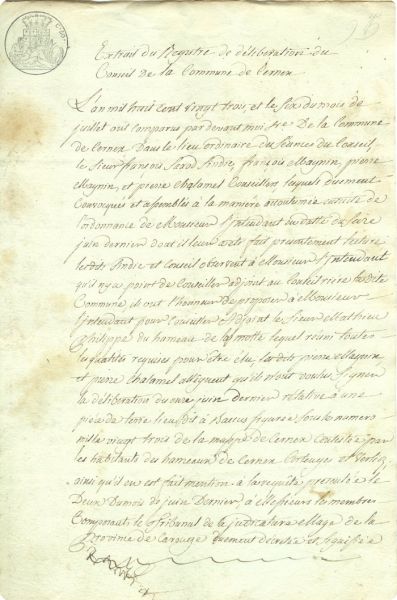 Extrait du Registre de déliberations du
Conseil de la Commune de Cernex
L'an mil huit cent vingt trois, et le six du mois de
juillet ont comparus par devant moi Sre De la Commune
de Cernex Dans le lieu ordinaire du Séances du Conseil
le Sieur françois Sindic, françois Magnin, pierre
Magnin, et pierre chatamel Conseillers lesquels duement
Convoqués et assemblés à la manière accoutumée ensuite de
l'ordonnance de Monsieur l'Intendant
juin dernier dont il leur a été fait présentement lecture
lesdits Sindic et Conseil observent à Monsieur l'Intendant
qu'il n'y a point de Conseiller adjoint au Conseil
Commune ils ont l'honneur de proposer à Monsieur
l'Intendant pour Conseiller Adjoint le Sieur Mathieu
Philippe du hameau de la motte lequel réuni toutes
les qualités requises pour être élu lesdits pierre Magnin
et pierre chatamel allèguent qu'ils n'ont voulu Signer
la déliberation du onze juin dernier relative à une
pièce de terre lieu dit à figurée sous le numero
mille vingt trois de la mappe de Cernex Contestée par
les habitants des hameaux de Cernex Cortenges et Verlioz
ainsi qu'il en est fait mention à la requête présentée le
Deux Du mois de juin Dernier, à Messieurs les membres
Composants le Tribunal de la judicature Mage de la
Province de Carouge duement décrétée et signifiée